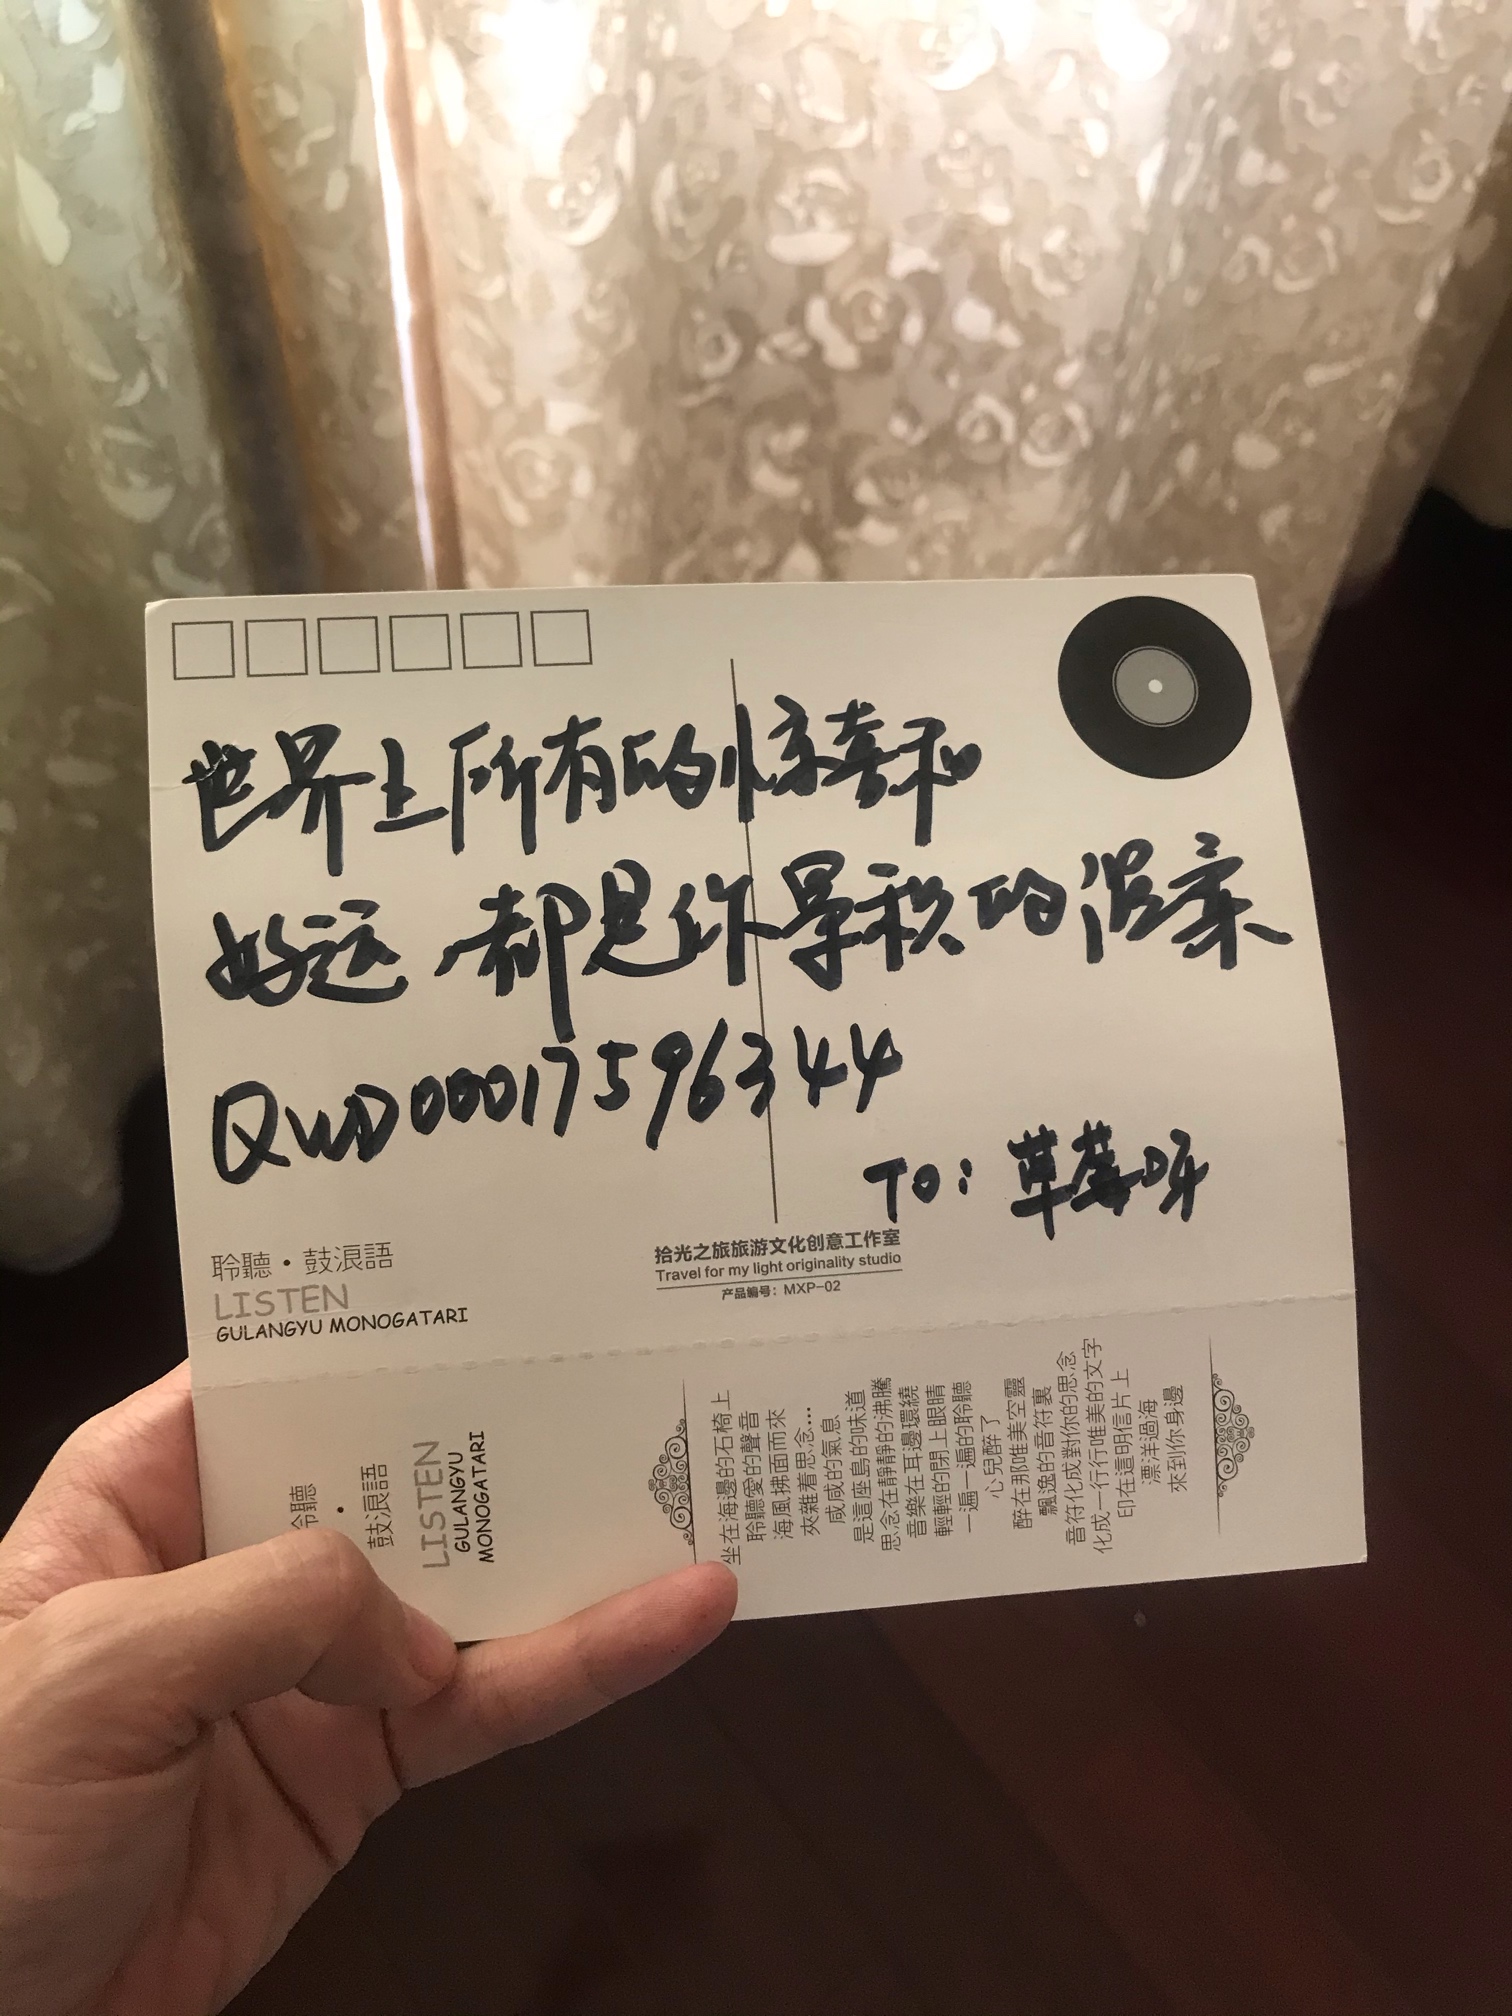 世界上所有的惊喜和
好运 都是你累积的温柔
QWD00017596344
TO: 草莓呀
聆聽・鼓浪語
LISTEN
GULANGYU MONOGATARI
拾光之旅旅游文化创意工作室
Travel for my light originality studio
产品编号：MXP-02
聆聽
・
鼓浪語
LISTEN
GULANGYU
MONOGATARI
坐在海邊的石椅上
聆聽愛的聲音
海風拂面而來
夾雜着思念...
咸咸的氣息
是這座島的味道
思念在靜靜的沸騰
音樂在耳邊環繞
輕輕的閉上眼睛
一遍一遍的聆聽
心兒醉了
醉在那唯美空靈
飄逸的音符裏
音符化成對你的思念
化成一行行唯美的文字
印在這明信片上
漂洋過海
來到你身邊